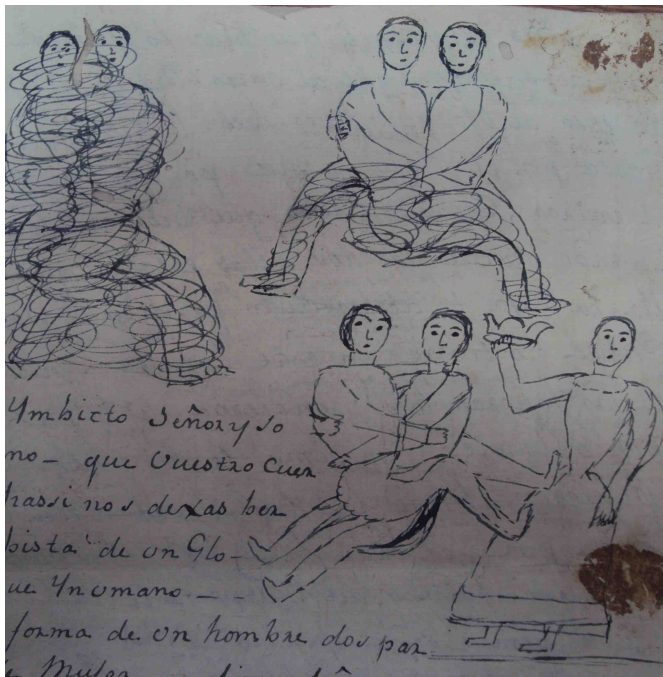 Ymbicto Señor y so
no - que Vuestro Cuer
hassi nos dexas ber
bista de un Glo-
ue Ynumano - -
forma de un hombre dos par
Muger